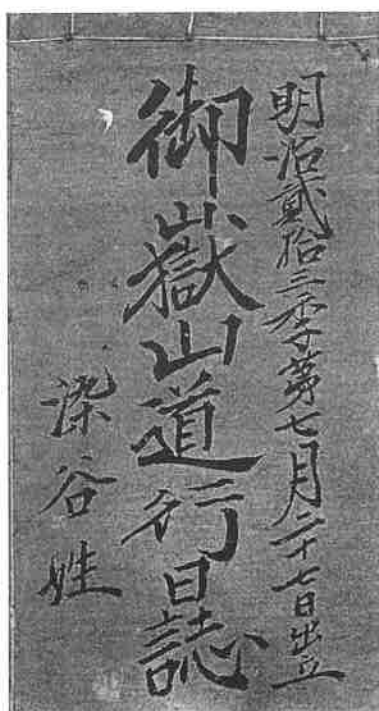 明治貳拾三季第七月二十七日出立
御嶽山道行日誌
染谷姓